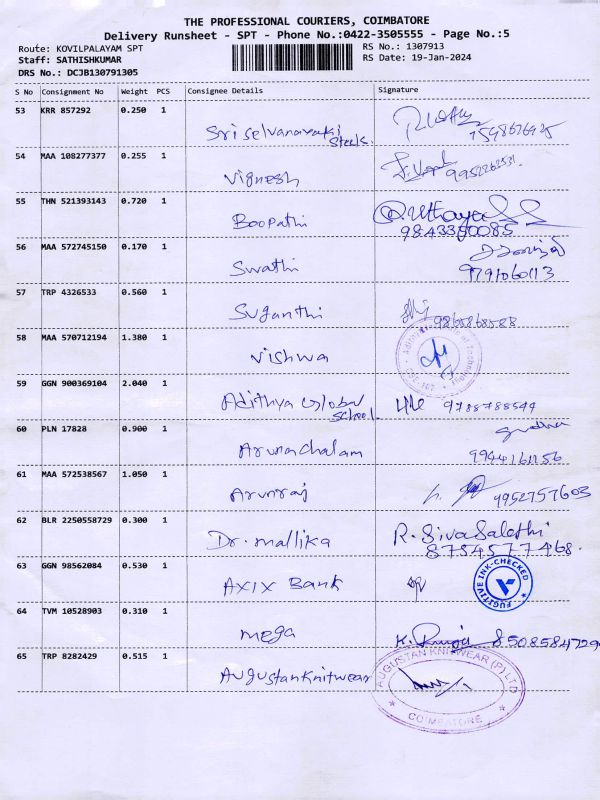 THE PROFESSIONAL COURIERS, COIMBATORE
Delivery Runsheet - SPT - Phone No.:0422-3505555 - Page No.:5
Route: KOVILPALAYAM SPT
RS No.: 1307913
Staff: SATHISHKUMAR
RS Date: 19-Jan-2024
DRS No.: DCJB130791305
S No Consignment No Weight PCS Consignee Details Signature
53 KRR 857292 0.250 1
Sri selvanayaki
steels.
54 MAA 108277377 0.255 1
Vignesh
55 THN 521393143 0.720 1
Boopathi
9843350085
56 MAA 572745150 0.170 1
Swathi
9791060113
57 TRP 4326533 0.560 1
Suganthi
9865868588
58 MAA 570712194 1.380 1
Vishwa
59 GGN 900369104 2.040 1
Adithya Global
School.
9788788544
60 PLN 17828 0.900 1
Arunachalam
9944161156
61 MAA 572538567 1.050 1
Arunraj
9952757603
62 BLR 2250558729 0.300 1
Dr. mallika
R. SivaSakthi
8754577468.
63 GGN 98562084 0.530 1
AXIX Bank
FUGITIVE INK-CHECKED
64 TVM 10528903 0.310 1
mega
8508584729
65 TRP 8282429 0.515 1
Augustanknitwear
AUGUSTAN KNITWEAR (P) LTD
COIMBATORE